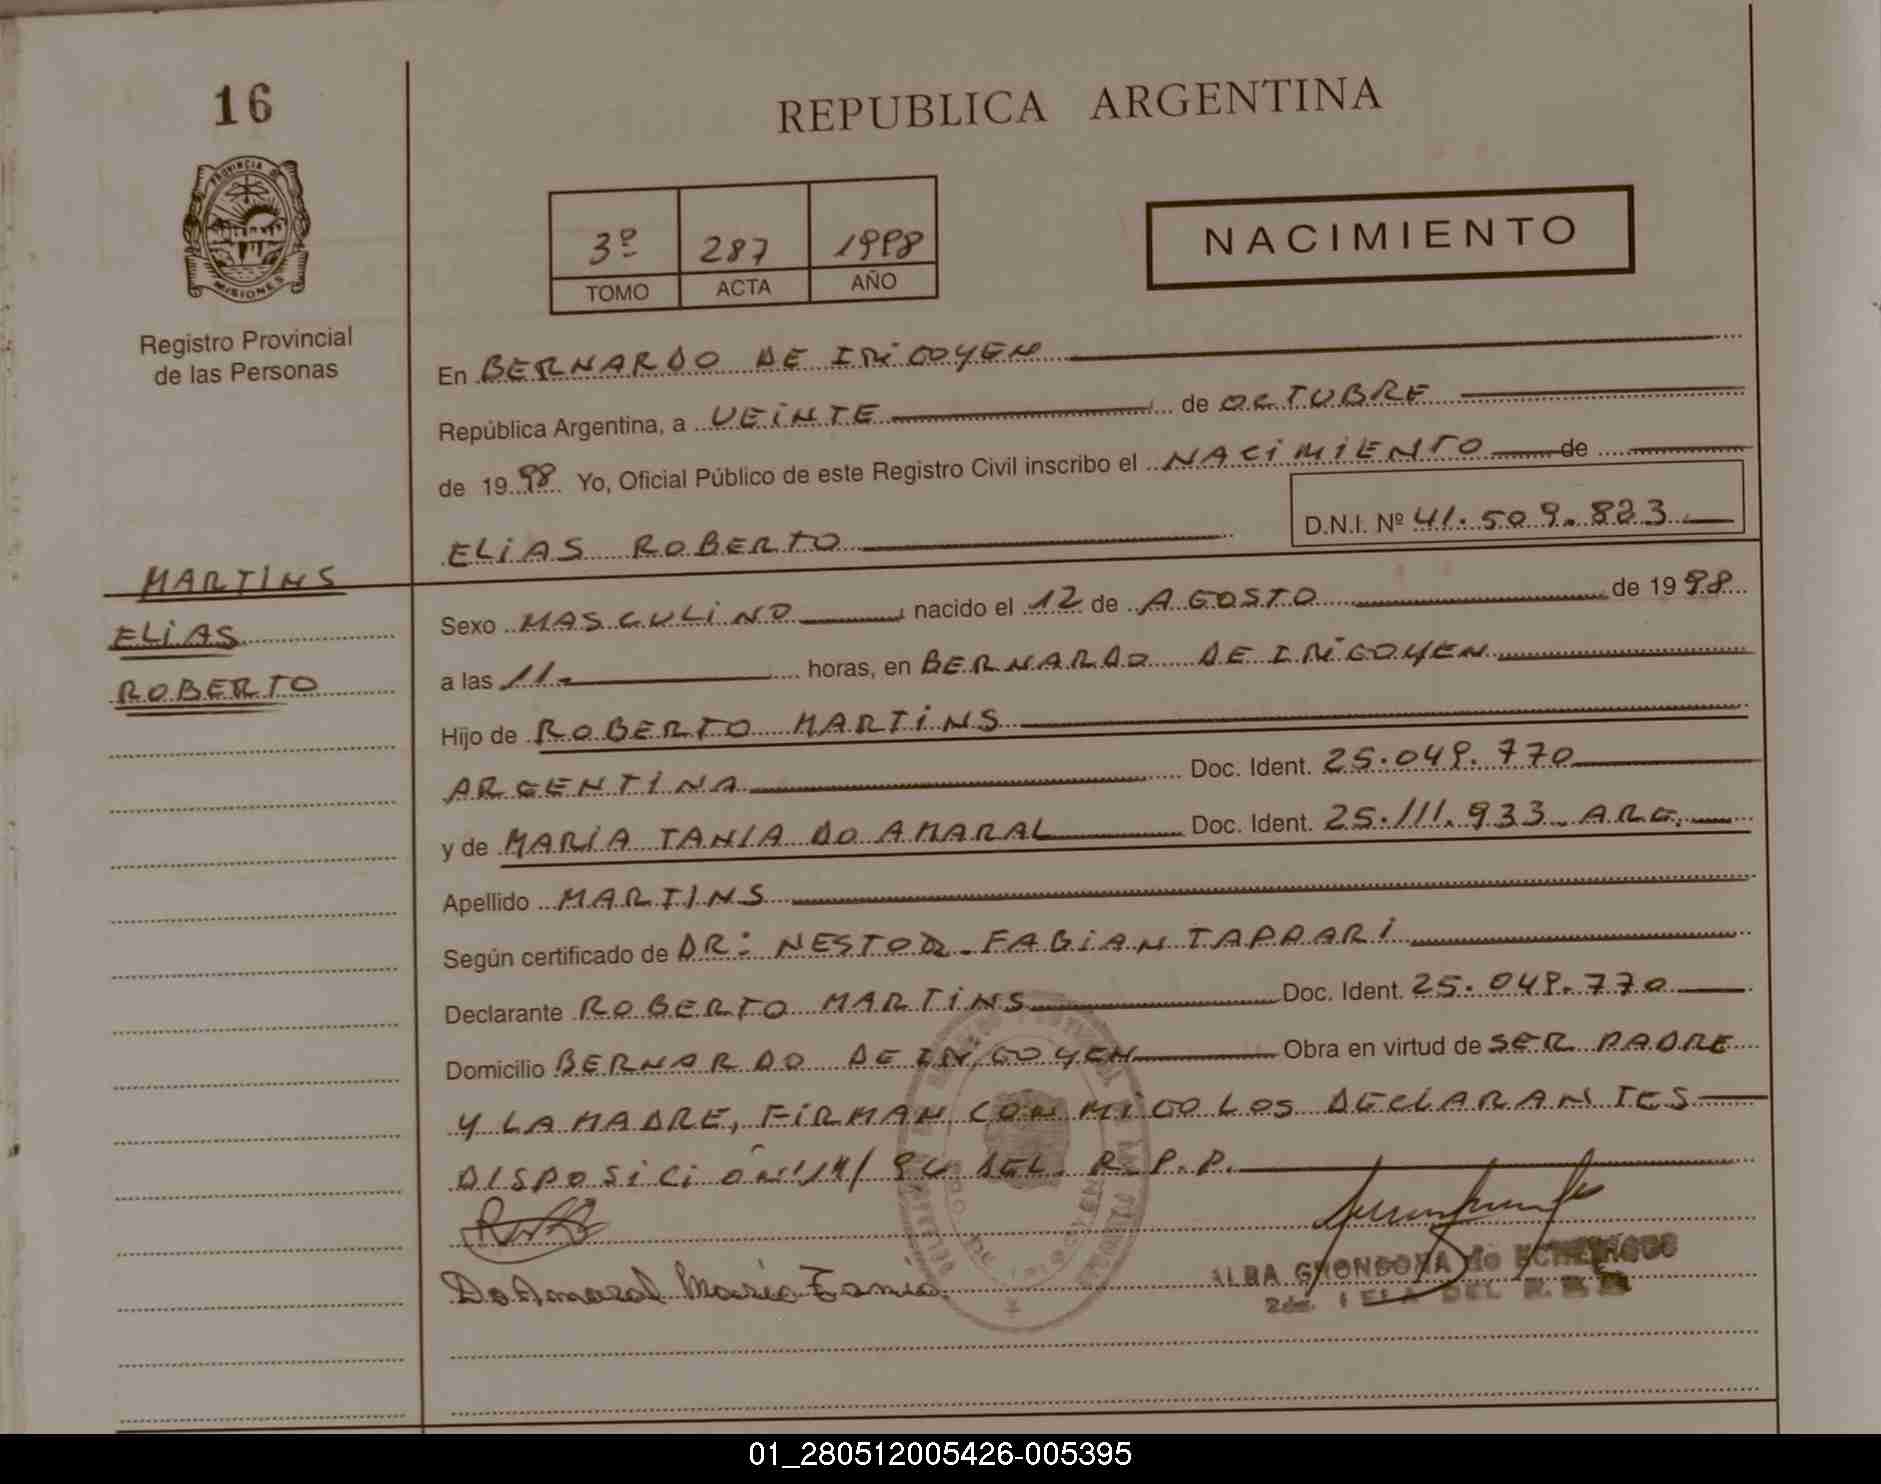 16
REPUBLICA ARGENTINA
PROVINCIA DE
MISIONES
Registro Provincial
de las Personas
3º 287 1998
TOMO ACTA AÑO
NACIMIENTO
En BERNARDO DE IRIGOYEN
República Argentina, a VEINTE de OCTUBRE
de 1998 Yo, Oficial Público de este Registro Civil inscribo el NACIMIENTO de
ELIAS ROBERTO
D.N.I. Nº 41.509.823
MARTINS
ELIAS
ROBERTO
Sexo MASCULINO, nacido el 12 de AGOSTO de 1998
a las 11.- horas, en BERNARDO DE IRIGOYEN
Hijo de ROBERTO MARTINS
ARGENTINA Doc. Ident. 25.049.770
y de MARIA TANIA DO AMARAL Doc. Ident. 25.111.933 ARG.
Apellido MARTINS
Según certificado de DR: NESTOR FABIAN TAPPARI
Declarante ROBERTO MARTINS Doc. Ident. 25.049.770
Domicilio BERNARDO DE IRIGOYEN Obra en virtud de SER PADRE
Y LA MADRE, FIRMAN CONMIGO LOS DECLARANTES
DISPOSICIÓN DEL R.P.P.
Do Amaral Maria Tania
ALBA de
DEL
01_280512005426-005395